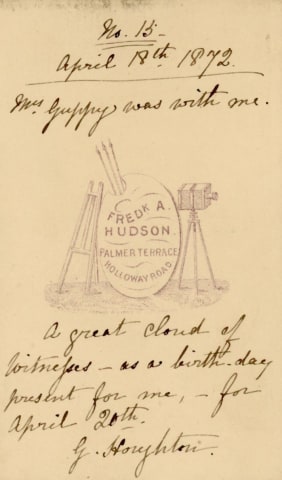 No. 15.
April 18th 1872.
Mrs Guppy was with me.
FREDK A.
HUDSON.
PALMER TERRACE
HOLLOWAY ROAD
A great cloud of
Witnesses – as a birth-day
present for me, – for
April 20th.
G. Houghton.